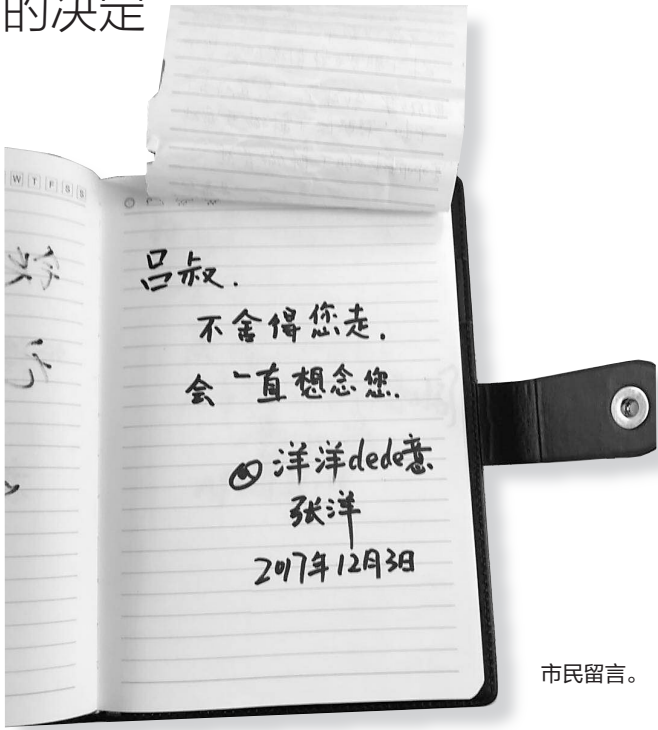 的决定
W T F S S
吕叔.
不舍得您走.
会一直想念您.
@洋洋dede意
张洋
2017年12月3日
市民留言。